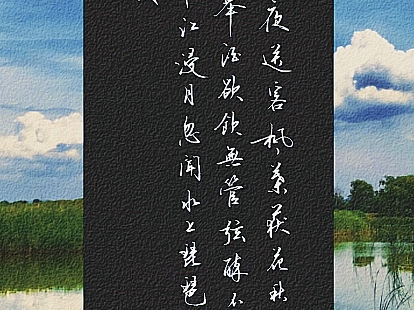 夜送客枫叶荻花秋
举酒欲饮无管弦醉不
江浸月忽闻水上琵琶